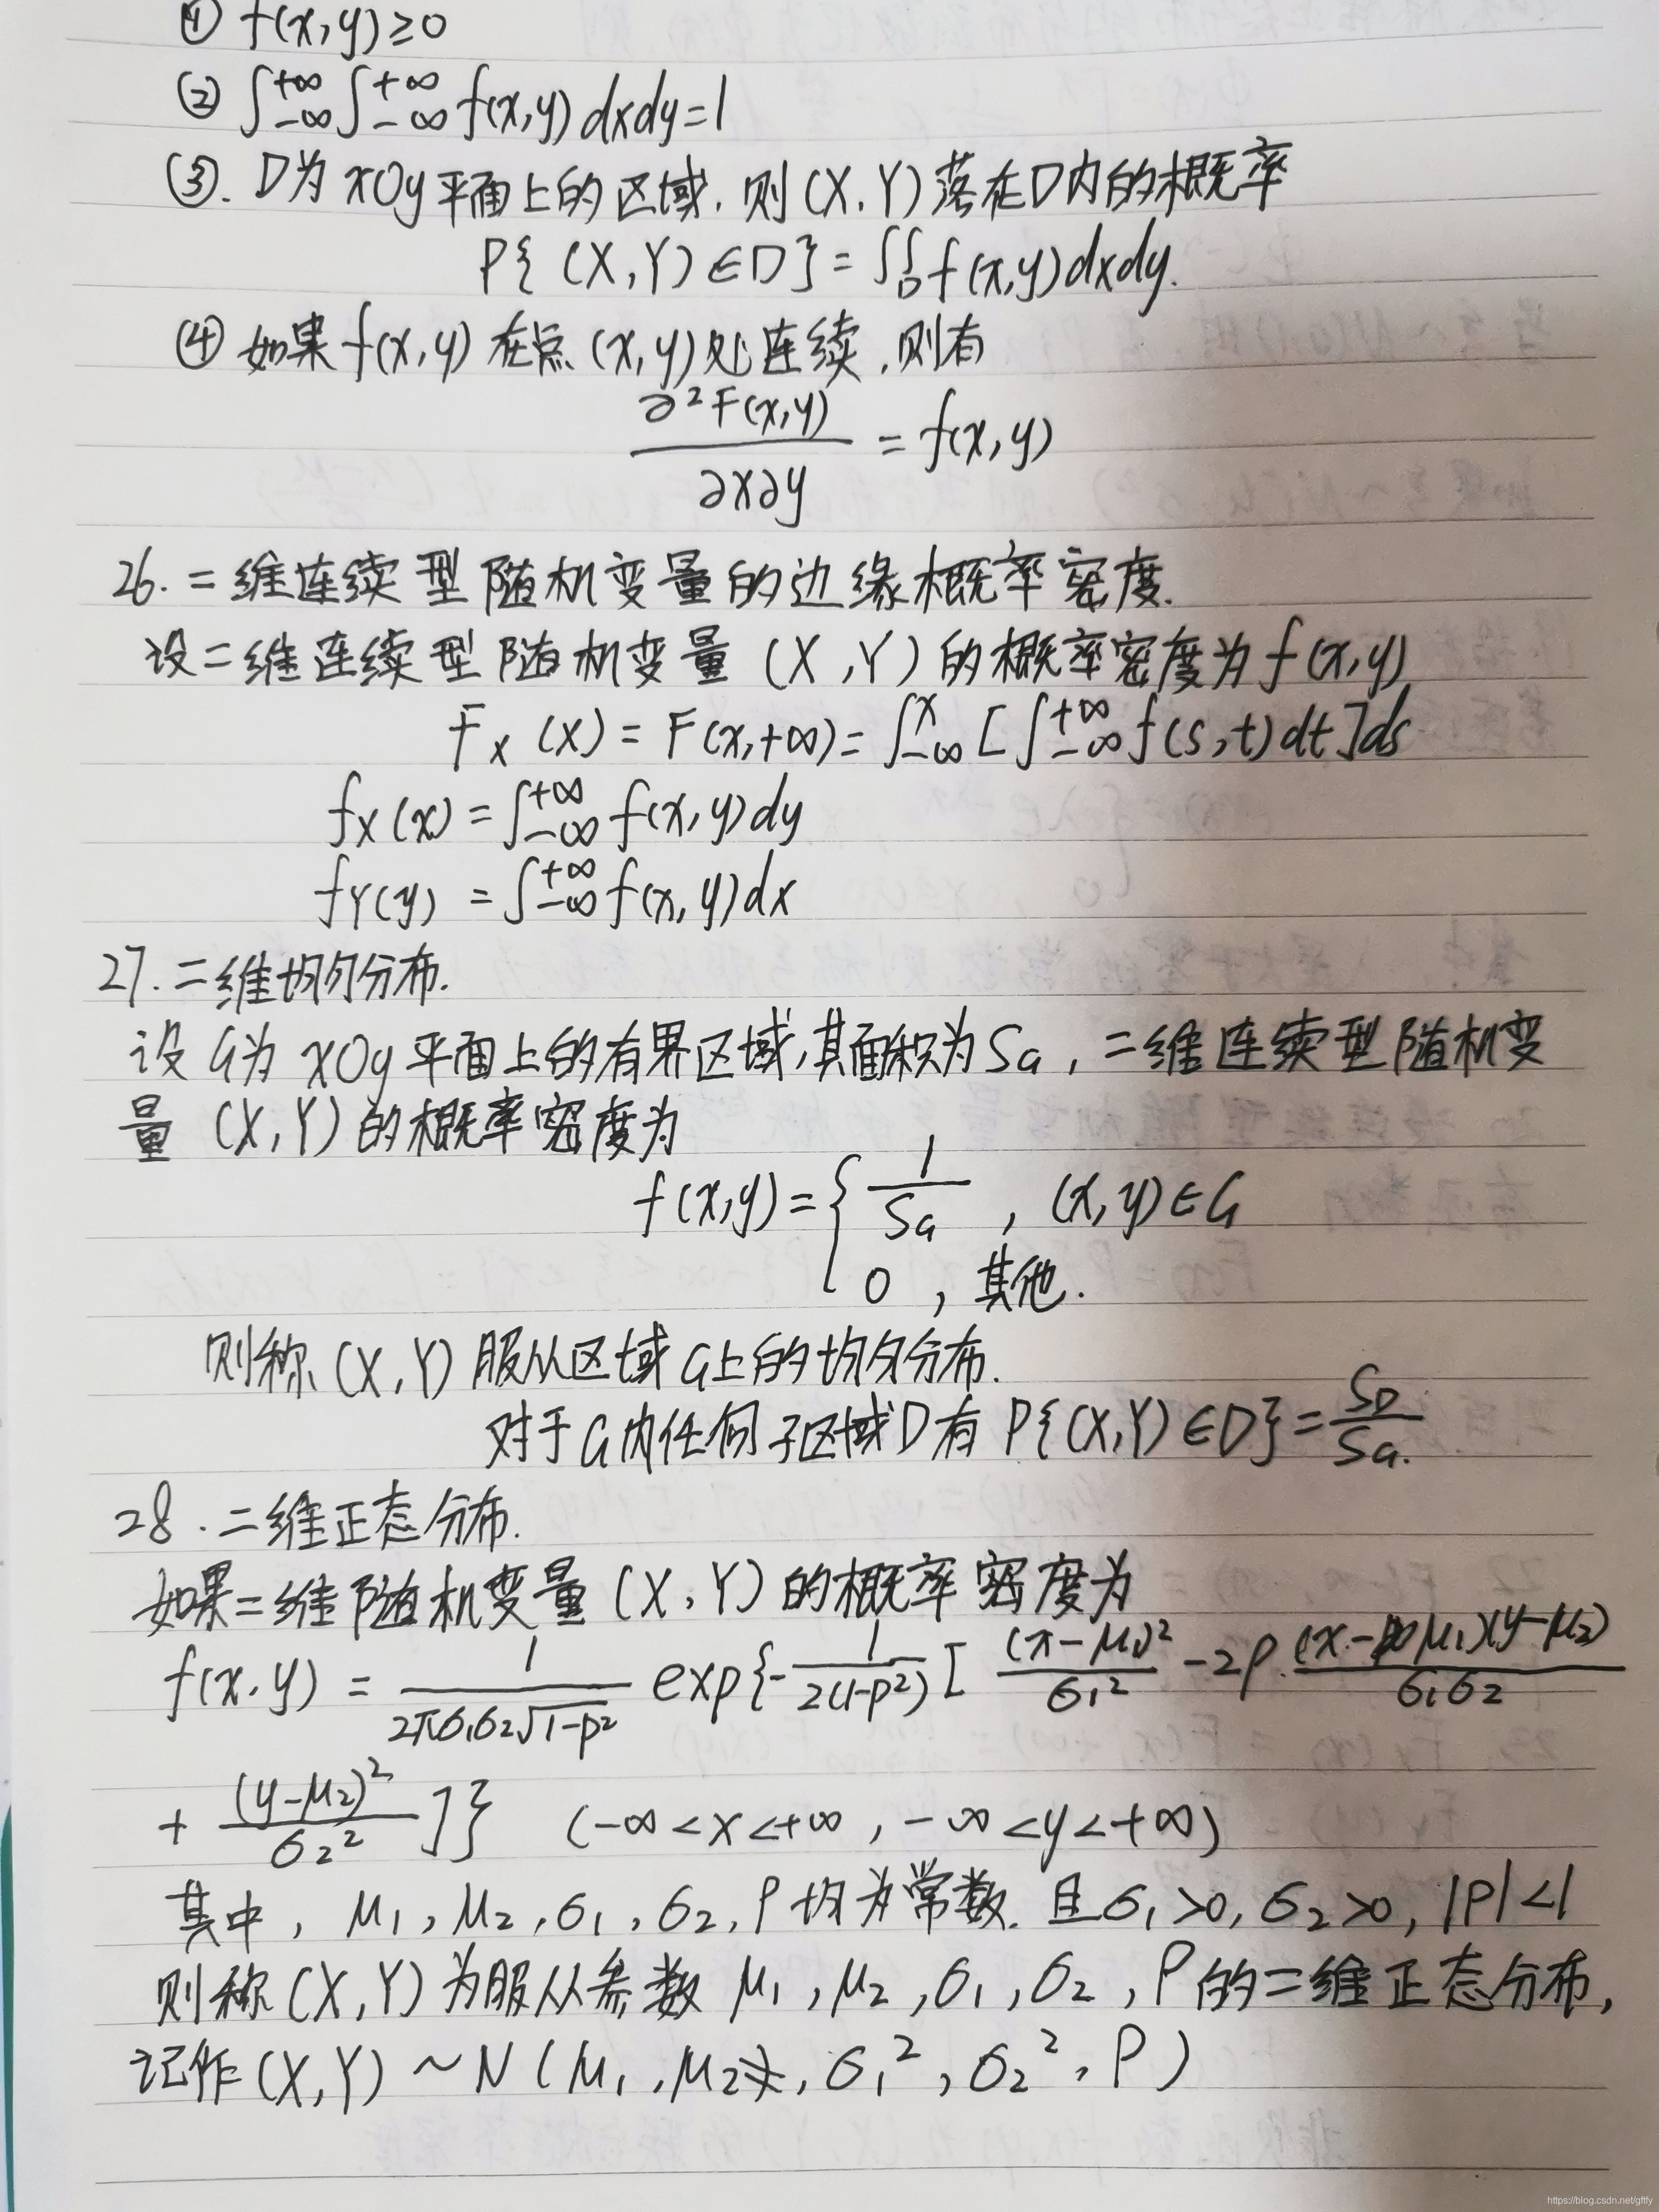 ① f(x,y)≥0
② ∫_{-∞}^{+∞}∫_{-∞}^{+∞} f(x,y)dxdy=1
③. D为xOy平面上的区域.则(X,Y)落在D内的概率
P{(X,Y)∈D}=∬_D f(x,y)dxdy.
④ 如果f(x,y)在点(x,y)处连续,则有
∂²F(x,y)/∂x∂y = f(x,y)
26.二维连续型随机变量的边缘概率密度.
设二维连续型随机变量(X,Y)的概率密度为f(x,y)
F_X(x)=F(x,+∞)=∫_{-∞}^{x}[∫_{-∞}^{+∞}f(s,t)dt]ds
f_X(x)=∫_{-∞}^{+∞}f(x,y)dy
f_Y(y)=∫_{-∞}^{+∞}f(x,y)dx
27.二维均匀分布.
设G为xOy平面上的有界区域,其面积为S_G,二维连续型随机变
量(X,Y)的概率密度为
f(x,y)={1/S_G,(x,y)∈G
0,其他.
则称(X,Y)服从区域G上的均匀分布.
对于G内任何子区域D有P{(X,Y)∈D}=S_D/S_G.
28.二维正态分布.
如果二维随机变量(X,Y)的概率密度为
f(x,y)=1/(2πσ₁σ₂√(1-ρ²)) exp{-1/(2(1-ρ²))[(x-μ₁)²/σ₁² -2ρ·(x-μ₁)(y-μ₂)/(σ₁σ₂)
+(y-μ₂)²/σ₂²]} (-∞<x<+∞,-∞<y<+∞)
其中,μ₁,μ₂,σ₁,σ₂,ρ均为常数.且σ₁>0,σ₂>0,|ρ|<1
则称(X,Y)为服从参数μ₁,μ₂,σ₁,σ₂,ρ的二维正态分布,
记作(X,Y)~N(μ₁,μ₂,σ₁²,σ₂²,ρ)
https://blog.csdn.net/gftfy